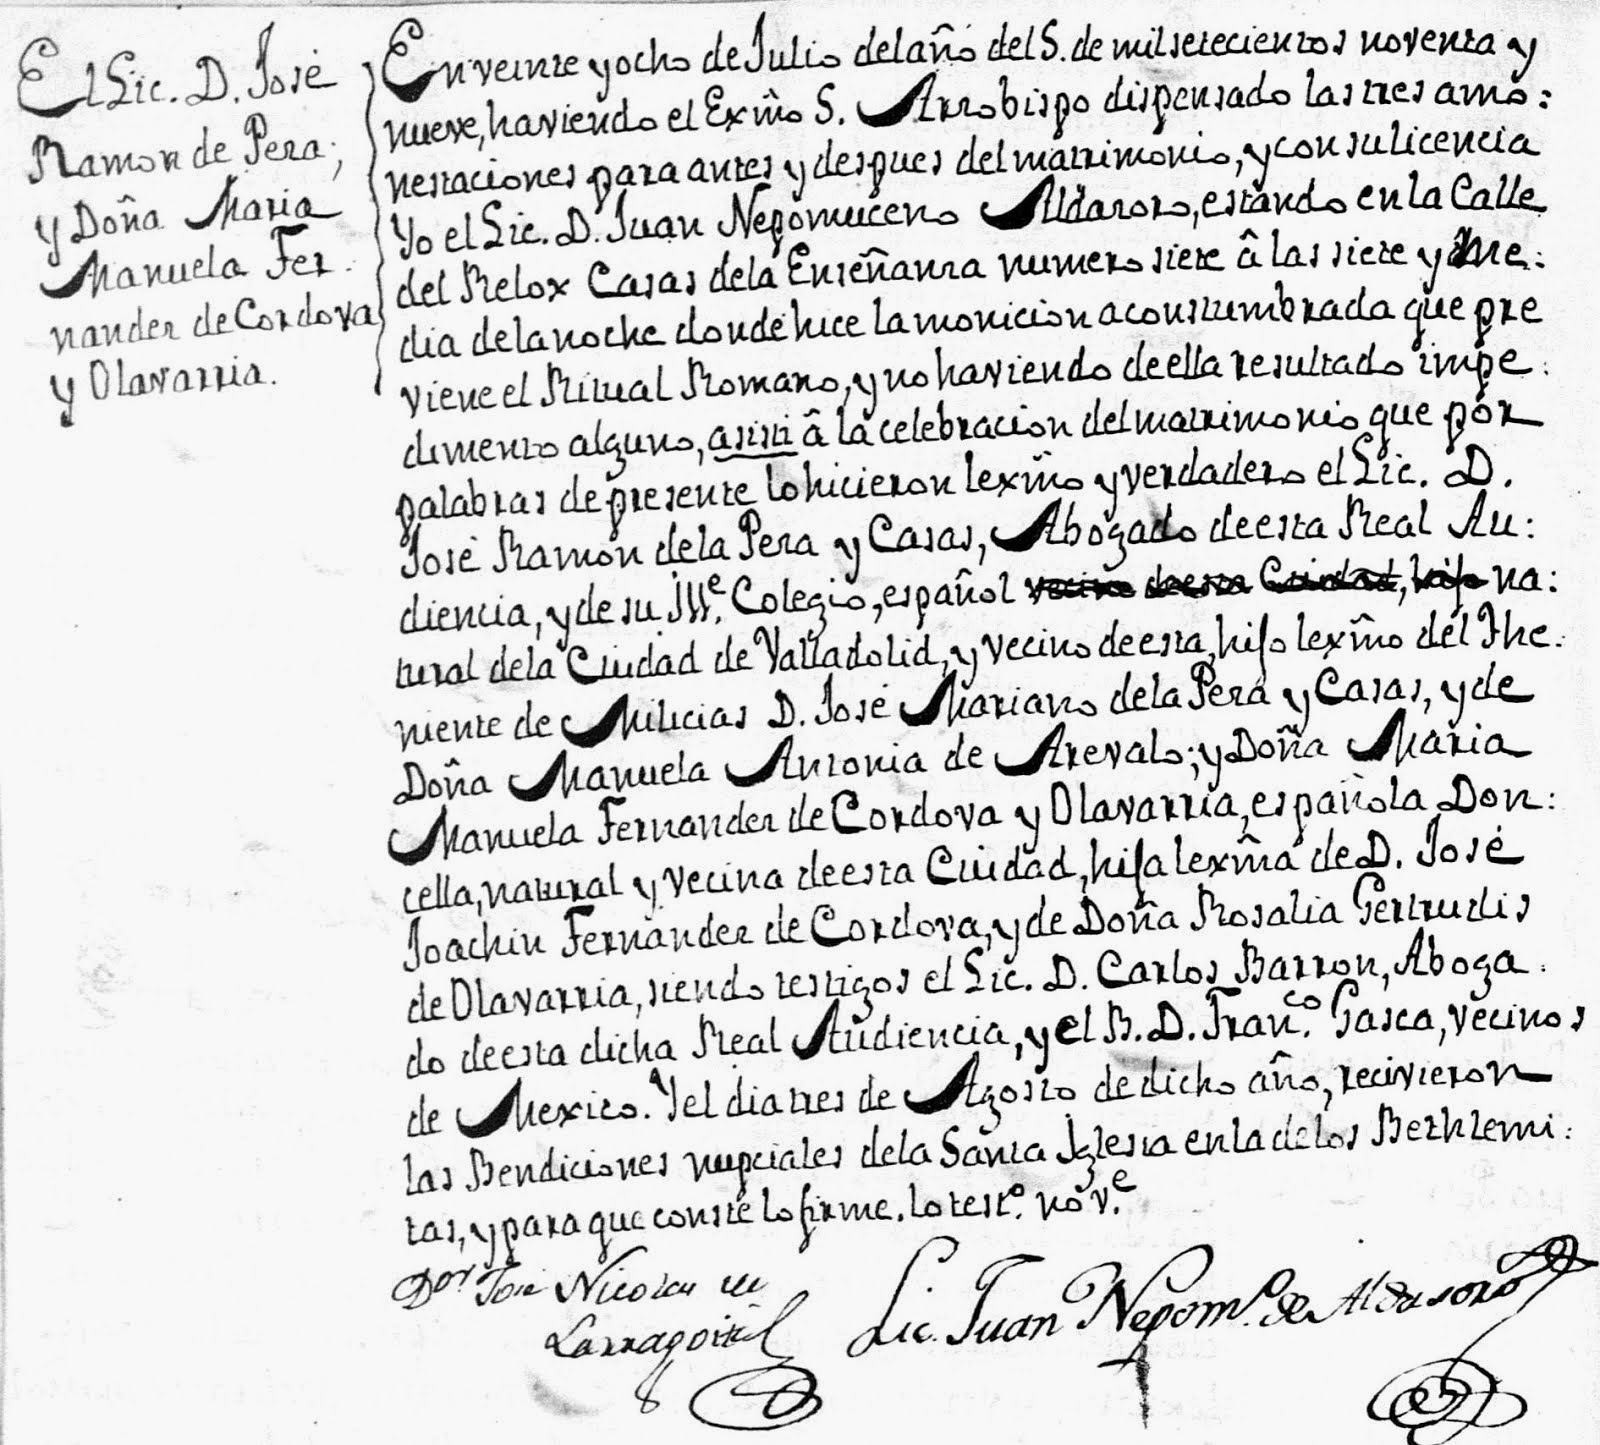 El Lic. D. José
Ramon de Peza,
y Doña Maria
Manuela Fer-
nandez de Cordova
y Olavarria.
En veinte y ocho de Julio del año del S. de mil setecientos noventa y
nueve, haviendo el Exm̃o S. Arzobispo dispensado las tres amo:
nestaciones para antes y despues del matrimonio, y con su licencia
Yo el Lic. D. Juan Nepomuceno Aldazoro, estando en la Calle
del Relox Casas de la Enseñanza numero siete â las siete y me:
dia de la noche donde hice la monicion acostumbrada que pre
viene el Ritual Romano, y no haviendo de ella resultado impe:
dimento alguno, asisti â la celebracion del matrimonio que por
palabras de presente lo hicieron lexm̃o y verdadero el Lic. D.
José Ramon de la Peza y Casas, Abogado de esta Real Au:
diencia, y de su Ill.e Colegio, español vecino de esta Ciudad, hijo na:
tural de la Ciudad de Valladolid, y vecino de esta, hijo lexm̃o del The:
niente de Milicias D. José Mariano de la Peza y Casas, y de
Doña Manuela Antonia de Arevalo; y Doña Maria
Manuela Fernandez de Cordova y Olavarria, española Don:
cella, natural y vecina de esta Ciudad, hija lexm̃a de D. José
Joachin Fernandez de Cordova, y de Doña Rosalia Gertrudis
de Olavarria, siendo testigos el Lic. D. Carlos Barron, Aboga:
do de esta dicha Real Audiencia, y el B. D. Fran.co Gasca, vecinos
de Mexico. Y el dia tres de Agosto de dicho año, recivieron
las Bendiciones nupciales de la Santa Iglesia en la de los Bethlemi:
tas, y para que conste lo firme. lo test.o no v.e
Dor José Nicolas de
Larragoiti
Lic. Juan Nepom.o de Aldasoro